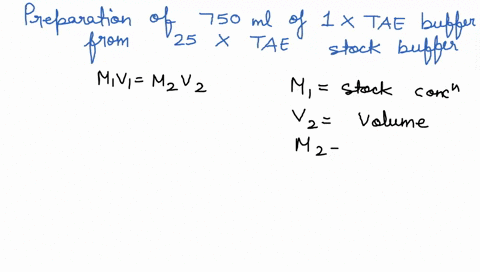 Preparation of 750 ml of 1 X TAE buffer
from 25 X TAE stock buffer
M₁V₁ = M₂V₂
M₁ = stock concⁿ
V₂ = Volume
M₂ -